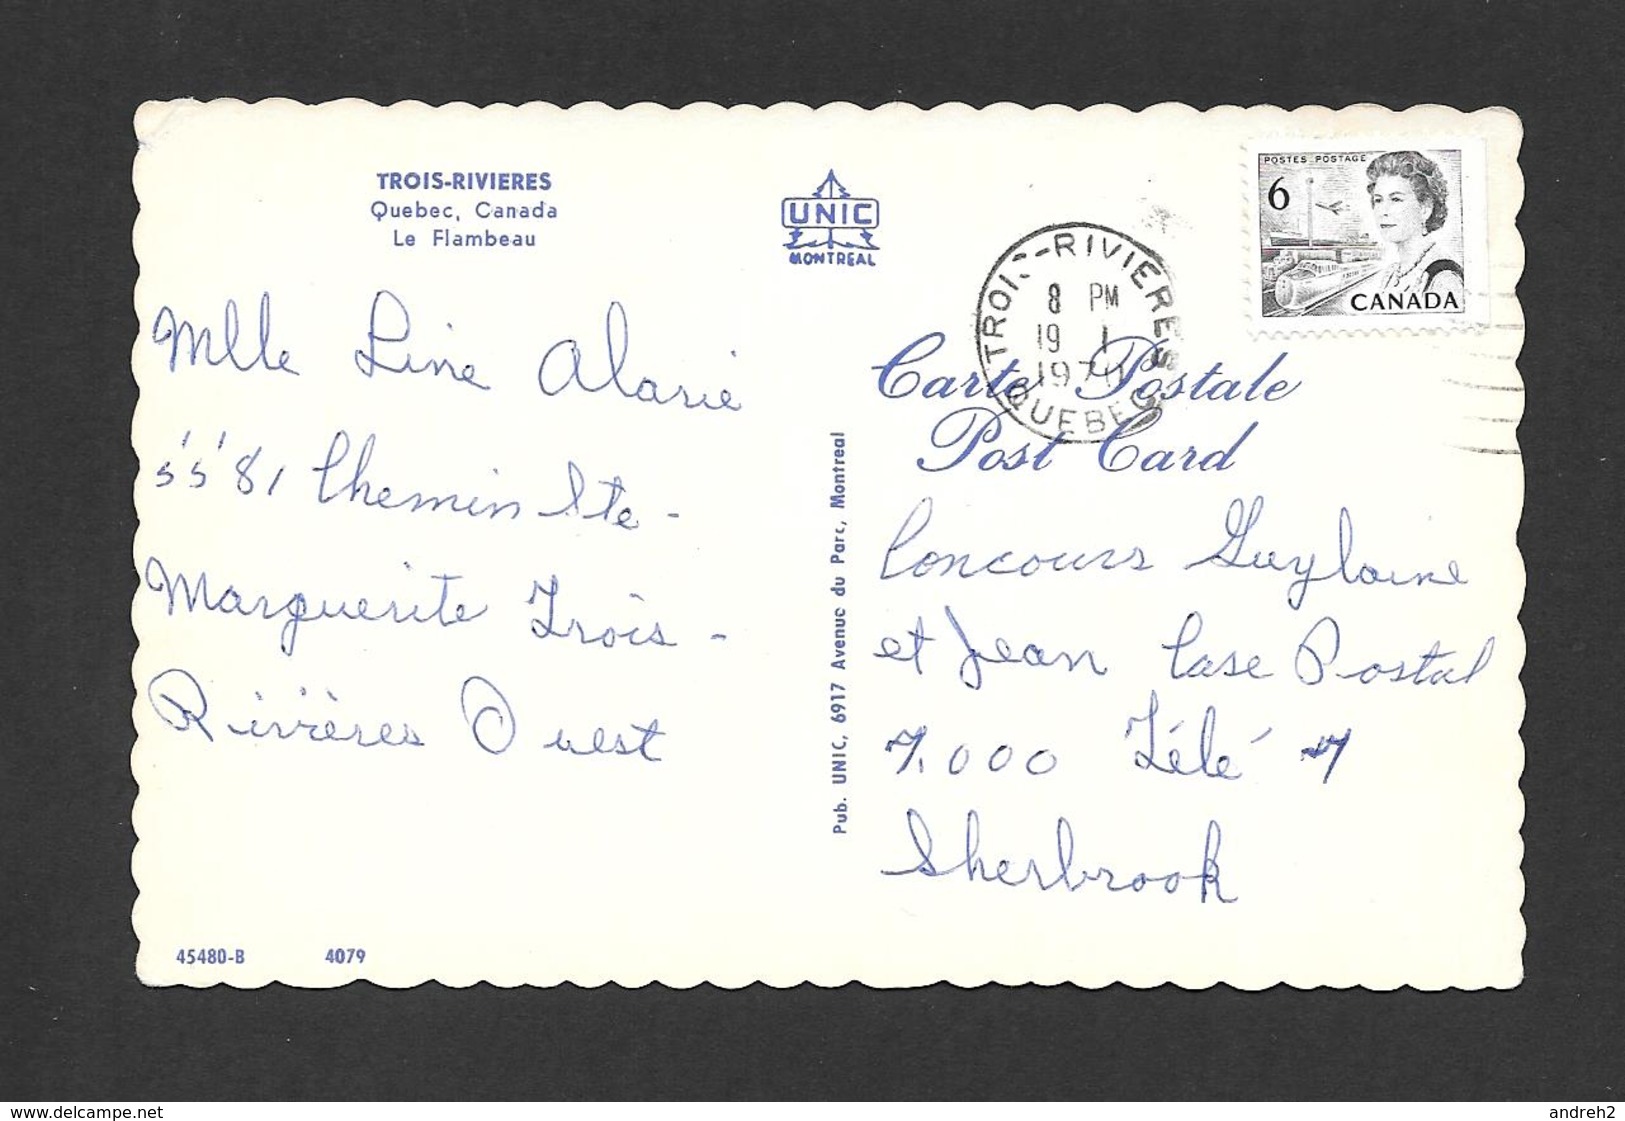 TROIS-RIVIERES
Quebec, Canada
Le Flambeau
UNIC
MONTREAL
POSTES POSTAGE
6
CANADA
TROIS-RIVIERES
8 PM
19 I
QUEBEC
Carte Postale
Post Card
Mlle Line Alarie
5581 Chemin Ste-
Marguerite Trois-
Rivières Ouest
Pub. UNIC, 6917 Avenue du Parc, Montreal
Concours Guylaine
et Jean Case Postal
7.000 Télé 7
Sherbrook
45480-B 4079
www.delcampe.net
andreh2